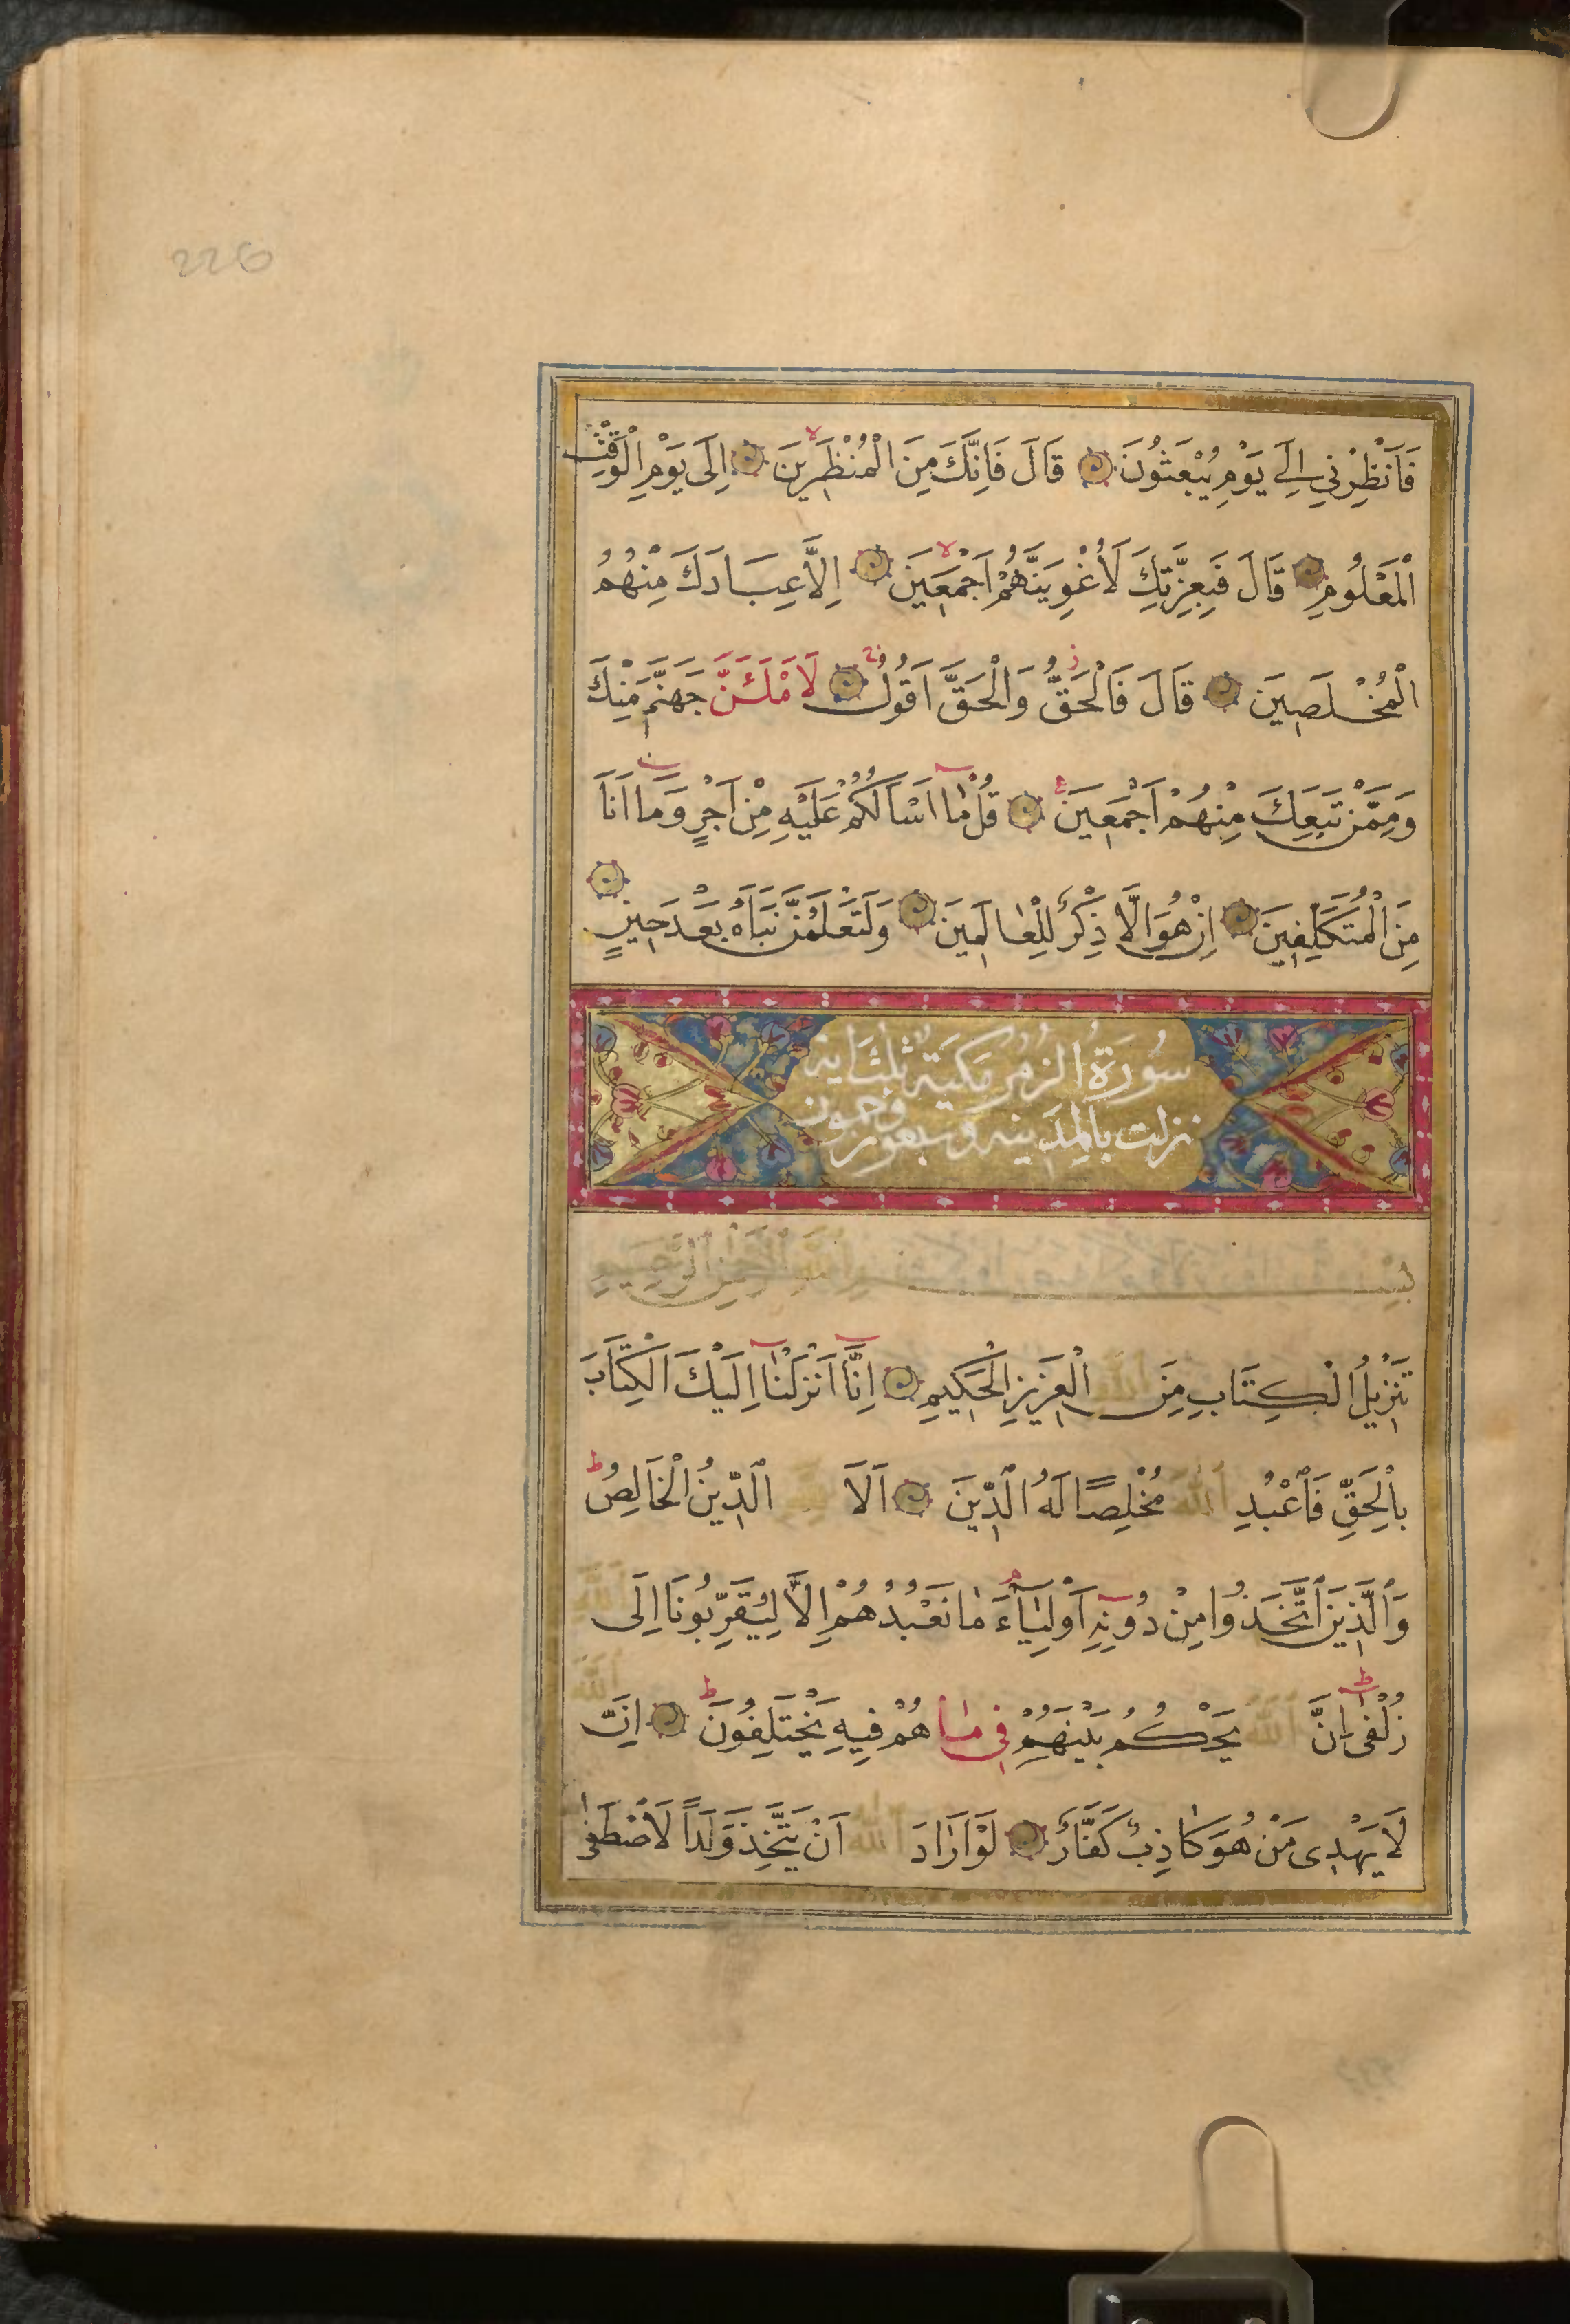 226
فَاَنْظِرْنِي اِلٰي يَوْمِ يُبْعَثُونَ قَالَ فَاِنَّكَ مِنَ الْمُنْظَرِينَ اِلَى يَوْمِ الْوَقْتِ
الْمَعْلُومِ قَالَ فَبِعِزَّتِكَ لَاُغْوِيَنَّهُمْ اَجْمَعِينَ اِلَّا عِبَادَكَ مِنْهُمُ
الْمُخْلَصِينَ قَالَ فَالْحَقُّ وَالْحَقَّ اَقُولُ لَاَمْلَئَنَّ جَهَنَّمَ مِنْكَ
وَمِمَّنْ تَبِعَكَ مِنْهُمْ اَجْمَعِينَ قُلْ مَا اَسْاَلُكُمْ عَلَيْهِ مِنْ اَجْرٍ وَمَا اَنَا
مِنَ الْمُتَكَلِّفِينَ اِنْ هُوَ اِلَّا ذِكْرٌ لِلْعَالَمِينَ وَلَتَعْلَمُنَّ نَبَاَهُ بَعْدَ حِينٍ
سُورَةُ الزُمَر مَكيَة ثلث اية
نزلت بالمدينه وسبعون
بِسْمِ اللّٰهِ الرَّحْمٰنِ الرَّحِيمِ
تَنْزِيلُ الْكِتَابِ مِنَ اللّٰهِ الْعَزِيزِ الْحَكِيمِ اِنَّا اَنْزَلْنَا اِلَيْكَ الْكِتَابَ
بِالْحَقِّ فَاعْبُدِ اللّٰهَ مُخْلِصًا لَهُ الدِّينَ اَلَا لِلّٰهِ الدِّينُ الْخَالِصُ
وَالَّذِينَ اتَّخَذُوا مِنْ دُونِهِ اَوْلِيَاءَ مَا نَعْبُدُهُمْ اِلَّا لِيُقَرِّبُونَا اِلَى اللّٰهِ
زُلْفٰى اِنَّ اللّٰهَ يَحْكُمُ بَيْنَهُمْ فِي مَا هُمْ فِيهِ يَخْتَلِفُونَ اِنَّ اللّٰهَ
لَا يَهْدِى مَنْ هُوَ كَاذِبٌ كَفَّارٌ لَوْ اَرَادَ اللّٰهُ اَنْ يَتَّخِذَ وَلَداً لَاصْطَفٰى